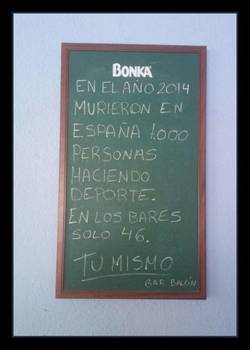 BONKA
EN EL AÑO 2014
MURIERON EN
ESPAÑA 1.000
PERSONAS
HACIENDO
DEPORTE.
EN LOS BARES
SOLO 46.
TU MISMO
BAR BALCÓN